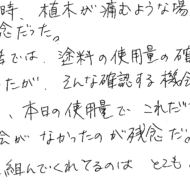 時、植木が痛むような場
念だった。
では、塗料の使用量の確
たが、そんな確認する機会
、本日の使用量で これだい
会が なかったのが残念だ。
組んでくれてるのは とても